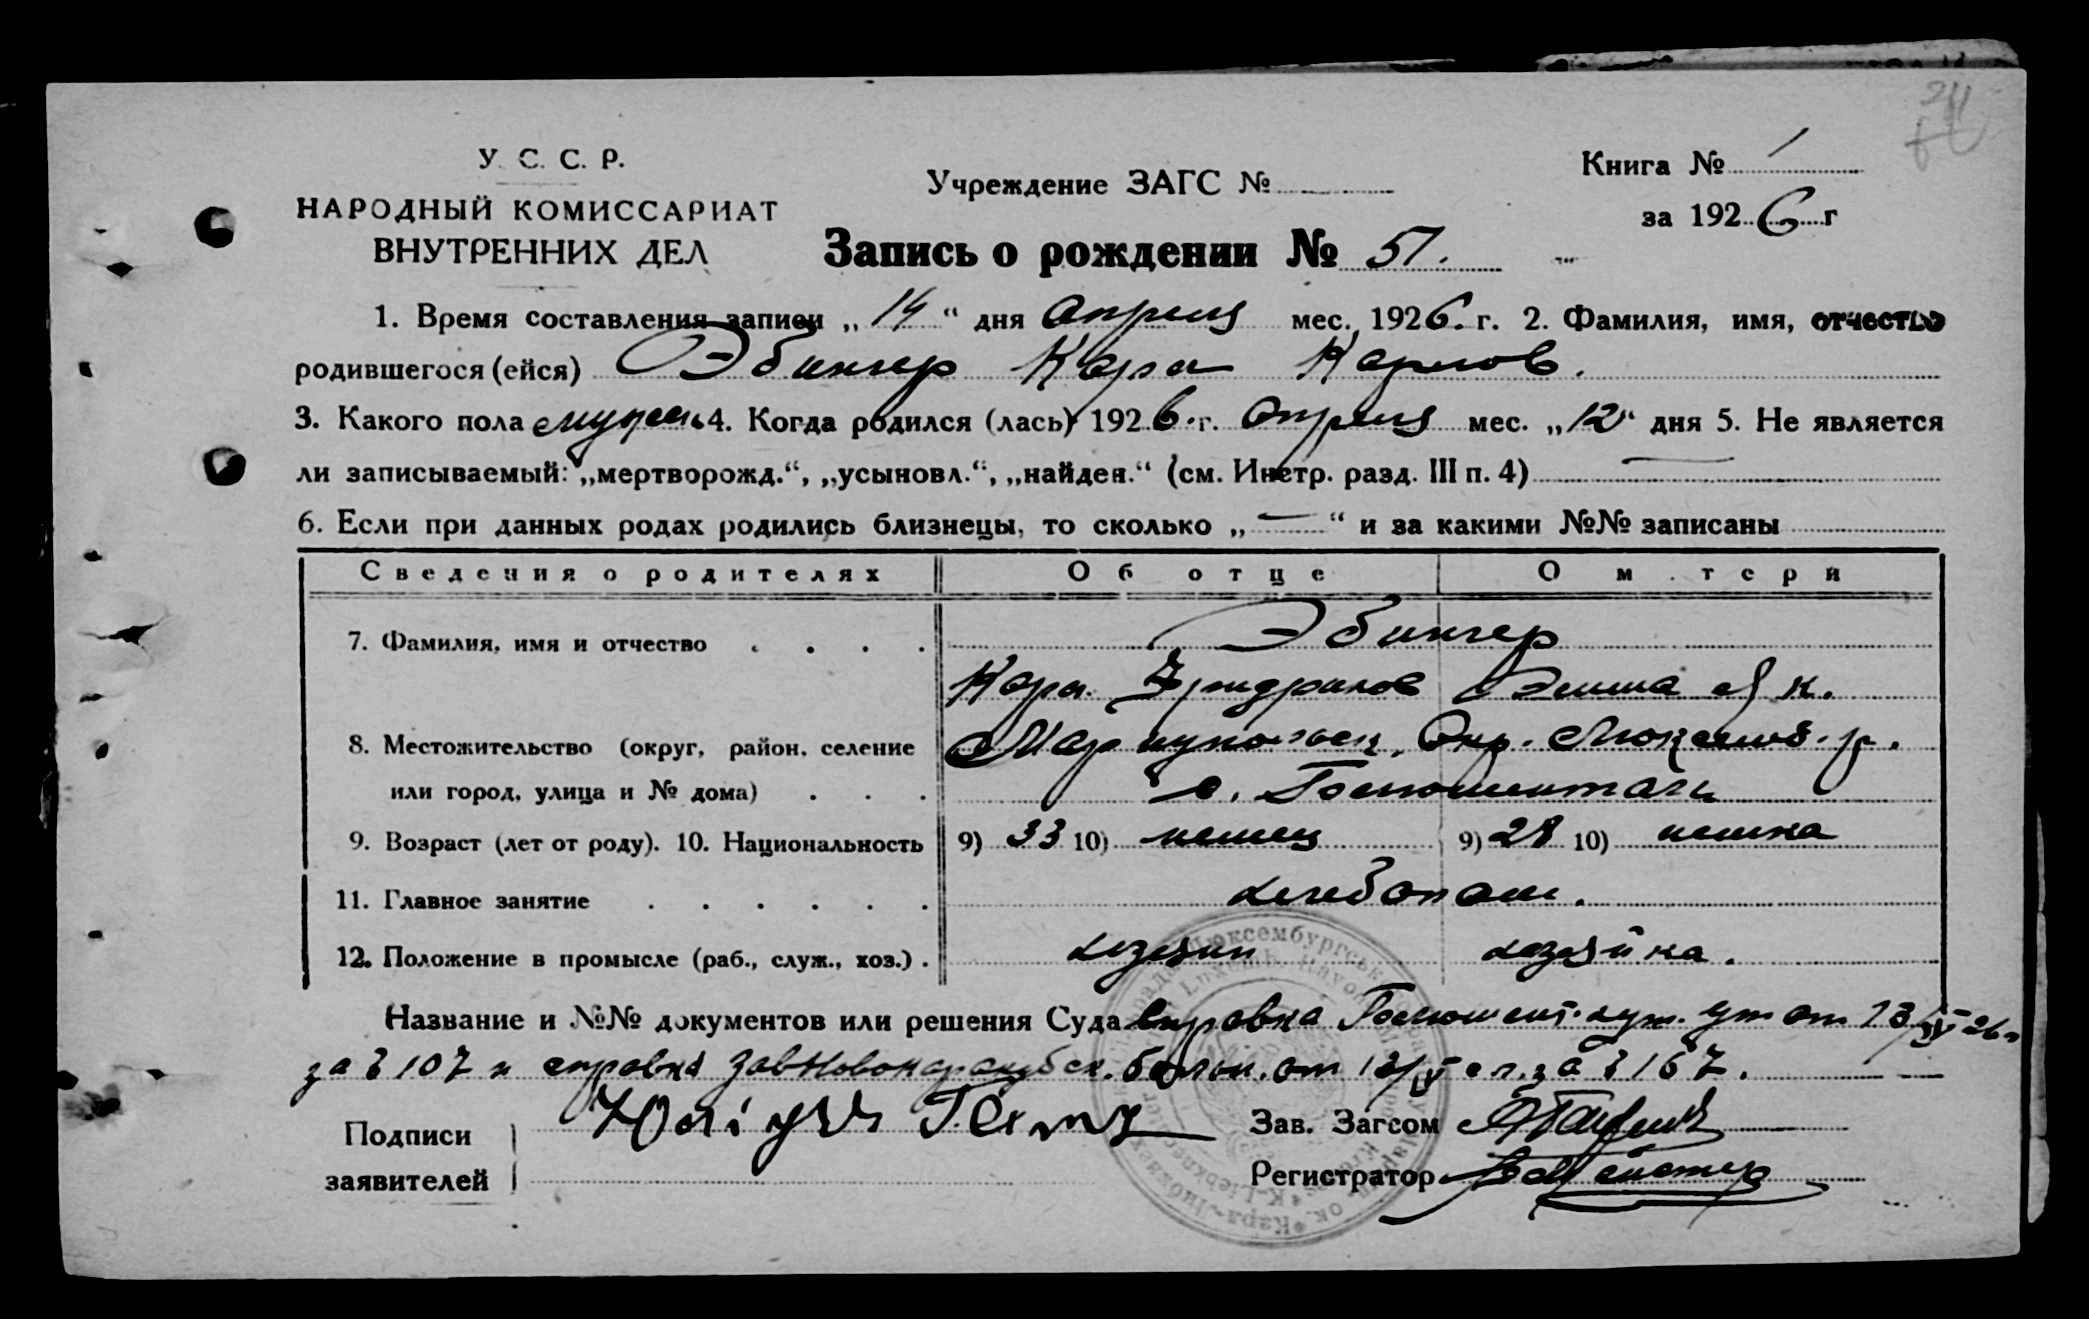 У. С. С. Р.
НАРОДНЫЙ КОМИССАРИАТ
ВНУТРЕННИХ ДЕЛ
Учреждение ЗАГС №
Книга № 1
за 1926 г
Запись о рождении № 57.
1. Время составления записи „14“ дня Апреля мес. 1926. г. 2. Фамилия, имя, отчество
родившегося (ейся) Эбингер Карл Карлов.
3. Какого пола мужск 4. Когда родился (лась) 1926. г. Апреля мес. „12“ дня 5. Не является
ли записываемый: „мертворожд.“, „усыновл.“, „найден.“ (см. Инстр. разд. III п. 4) —
6. Если при данных родах родились близнецы, то сколько „—“ и за какими №№ записаны
Сведения о родителях Об отце О м.тери
7. Фамилия, имя и отчество . . . . Эбингер
Карл Фридрихов Эмма Як.
8. Местожительство (округ, район, селение Мариупольск. Окр. Люксемб. р.
или город, улица и № дома) . . . с.
9. Возраст (лет от роду). 10. Национальность 9) 33 10) немец 9) 28 10) немка
11. Главное занятие . . . . . . хлебопаш.
12. Положение в промысле (раб., служ., хоз.) . хозяин хозяйка.
Название и №№ документов или решения Суда Справка от 13/IV 26 г
за № 107 и справка больн. от 12/IV с г. за № 167.
Подписи
заявителей
Зав. Загсом
Регистратор